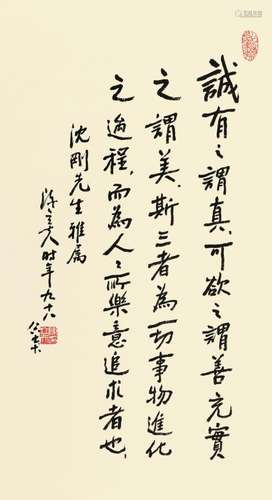 誠有之謂真,可欲之謂善,充實
之謂美.斯三者為一切事物進化
之過程,而為人人所樂意追求者也,
沈剛先生雅屬
陳立夫時年九十八